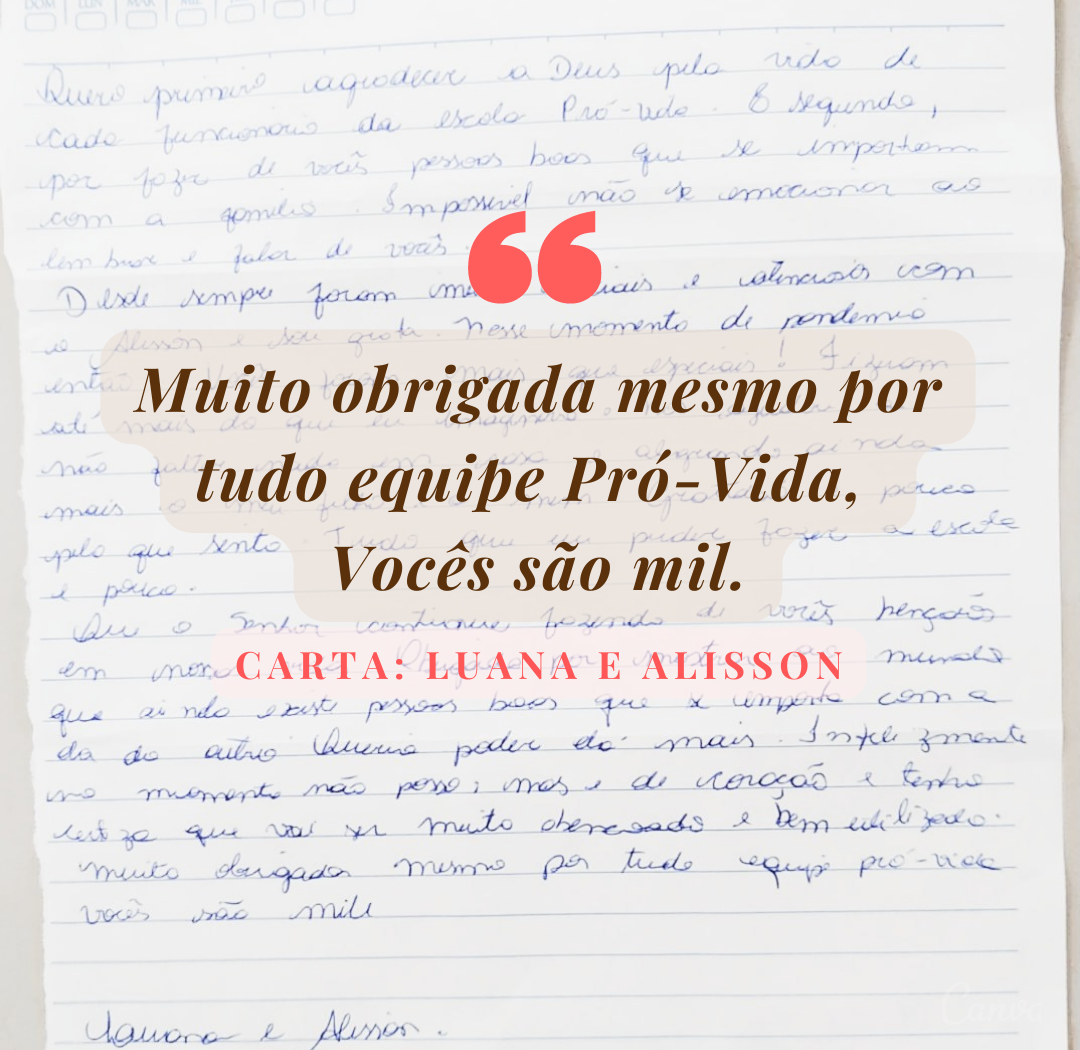 DOM
Quero primeiro agradecer a Deus pela vida de
cada funcionário da escola Pró-vida. E segundo,
por fazer de vocês pessoas boas que se importam
com a família. Impossível não se emocionar ao
lembrar e falar de vocês.
Desde sempre foram e atenciosos com
o Alisson e sou grata. Nesse momento de pandemia
então mais que especiais! Fizeram
até mais do que eu imaginava
não
mais o meu pouco
pelo que sinto. Tudo que eu puder fazer a escola
é pouco.
Que o Senhor continue fazendo de vocês bençãos
em mundo
que ainda existe pessoas boas que se importa com a
da do outro Queria poder dá mais. Infelizmente
no momento não posso, mas é de coração e tenho
certeza que vai ser muito abençoado e bem utilizado.
Muito obrigada mesmo por tudo equipe pró-vida
vocês são mill
Lauana e Alisson.
Muito obrigada mesmo por
tudo equipe Pró-Vida,
Vocês são mil.
CARTA: LUANA E ALISSON
Canva